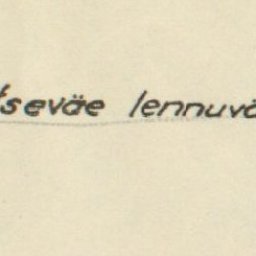 tseväe lennuvä